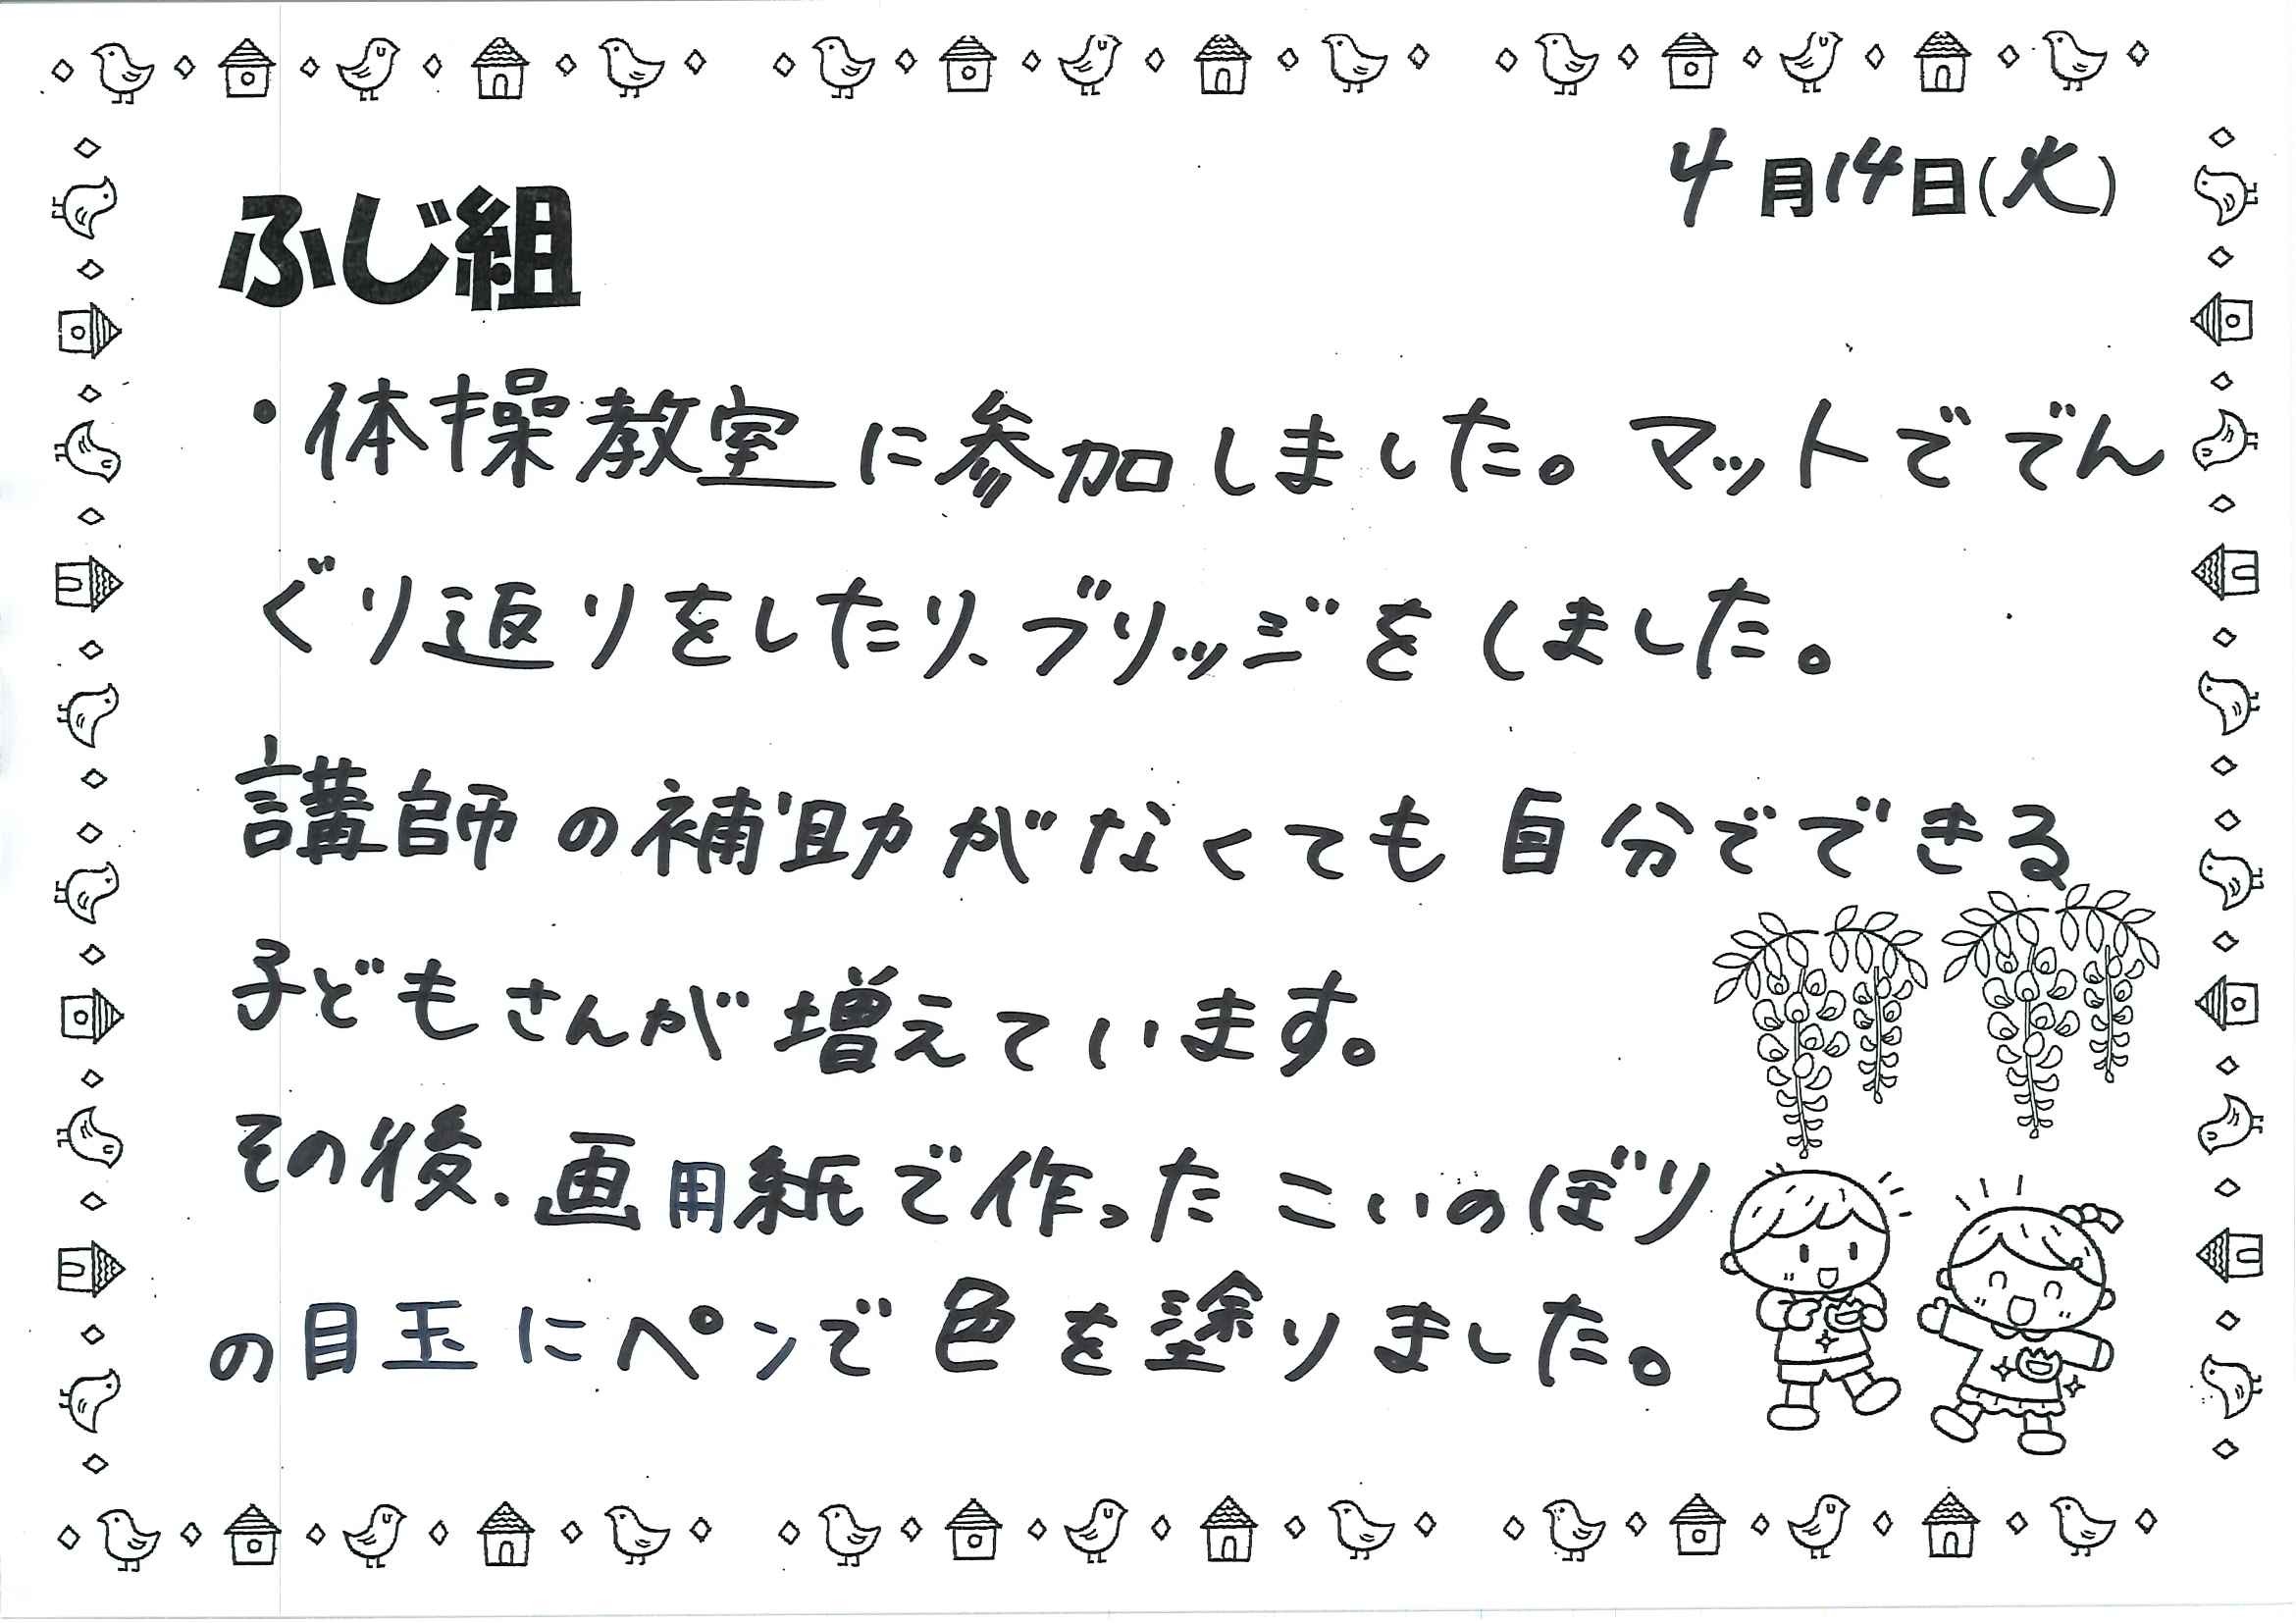 4月14日(火)
ふじ組
・体操教室に参加しました。マットででん
ぐり返りをしたり、ブリッジをしました。
講師の補助がなくても自分でできる
子どもさんが増えています。
その後、画用紙で作ったこいのぼり
の目玉にペンで色を塗りました。